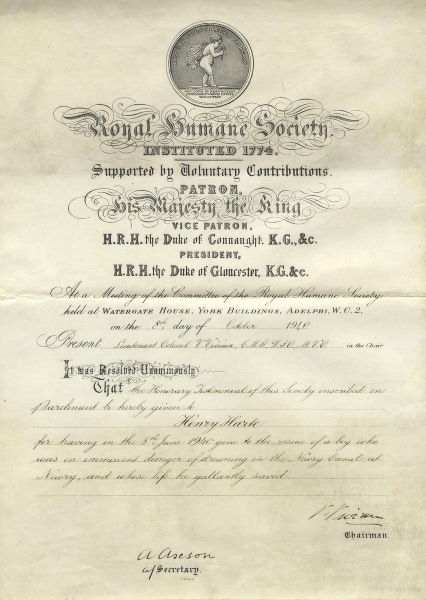 Royal Humane Society.
INSTITUTED 1774.
Supported by Voluntary Contributions.
PATRON,
His Majesty the King
VICE PATRON,
H.R.H. the Duke of Connaught. K.G., &c.
PRESIDENT,
H.R.H. the Duke of Gloucester, K.G. &c.
At a Meeting of the Committee of the Royal Humane Society
held at WATERGATE HOUSE, YORK BUILDINGS, ADELPHI, W.C.2.
on the 8th day of October 1940
Present Lieutenant Colonel V. Vivian, C.M.G., D.S.O., M.V.O. in the Chair
It was Resolved Unanimously
That the Honorary Testimonial of this Society inscribed on
Parchment be hereby given to
Henry Harte
for having on the 8th June 1940 gone to the rescue of a boy who
was in imminent danger of drowning in the Newry Canal at
Newry, and whose life he gallantly saved.
V. Vivian
Chairman.
Secretary.